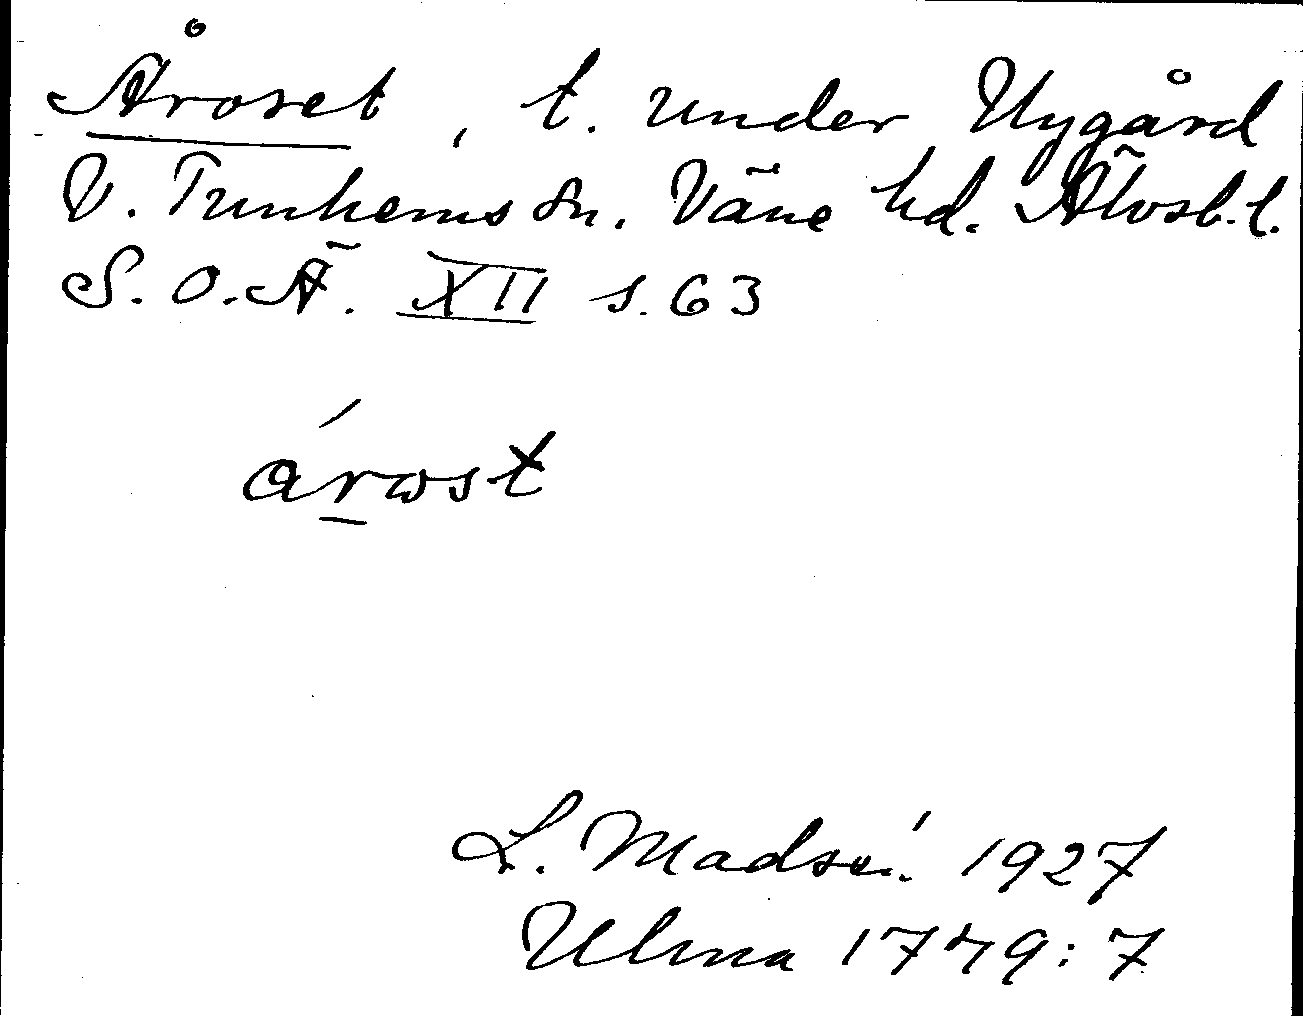 Åroset, t. under Nygård
V. Tunhems sn. Väne hd. Älvsb. l.
S. O. Ä. XII s. 63
árωst
L. Madsén 1927
Ulma 1779:7